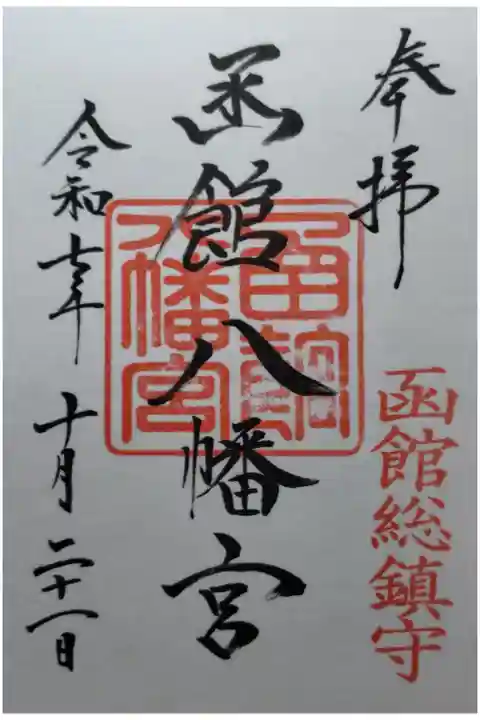 奉拝
函館総鎮守
函館八幡宮
函館
八幡宮
令和七年 十月二十一日